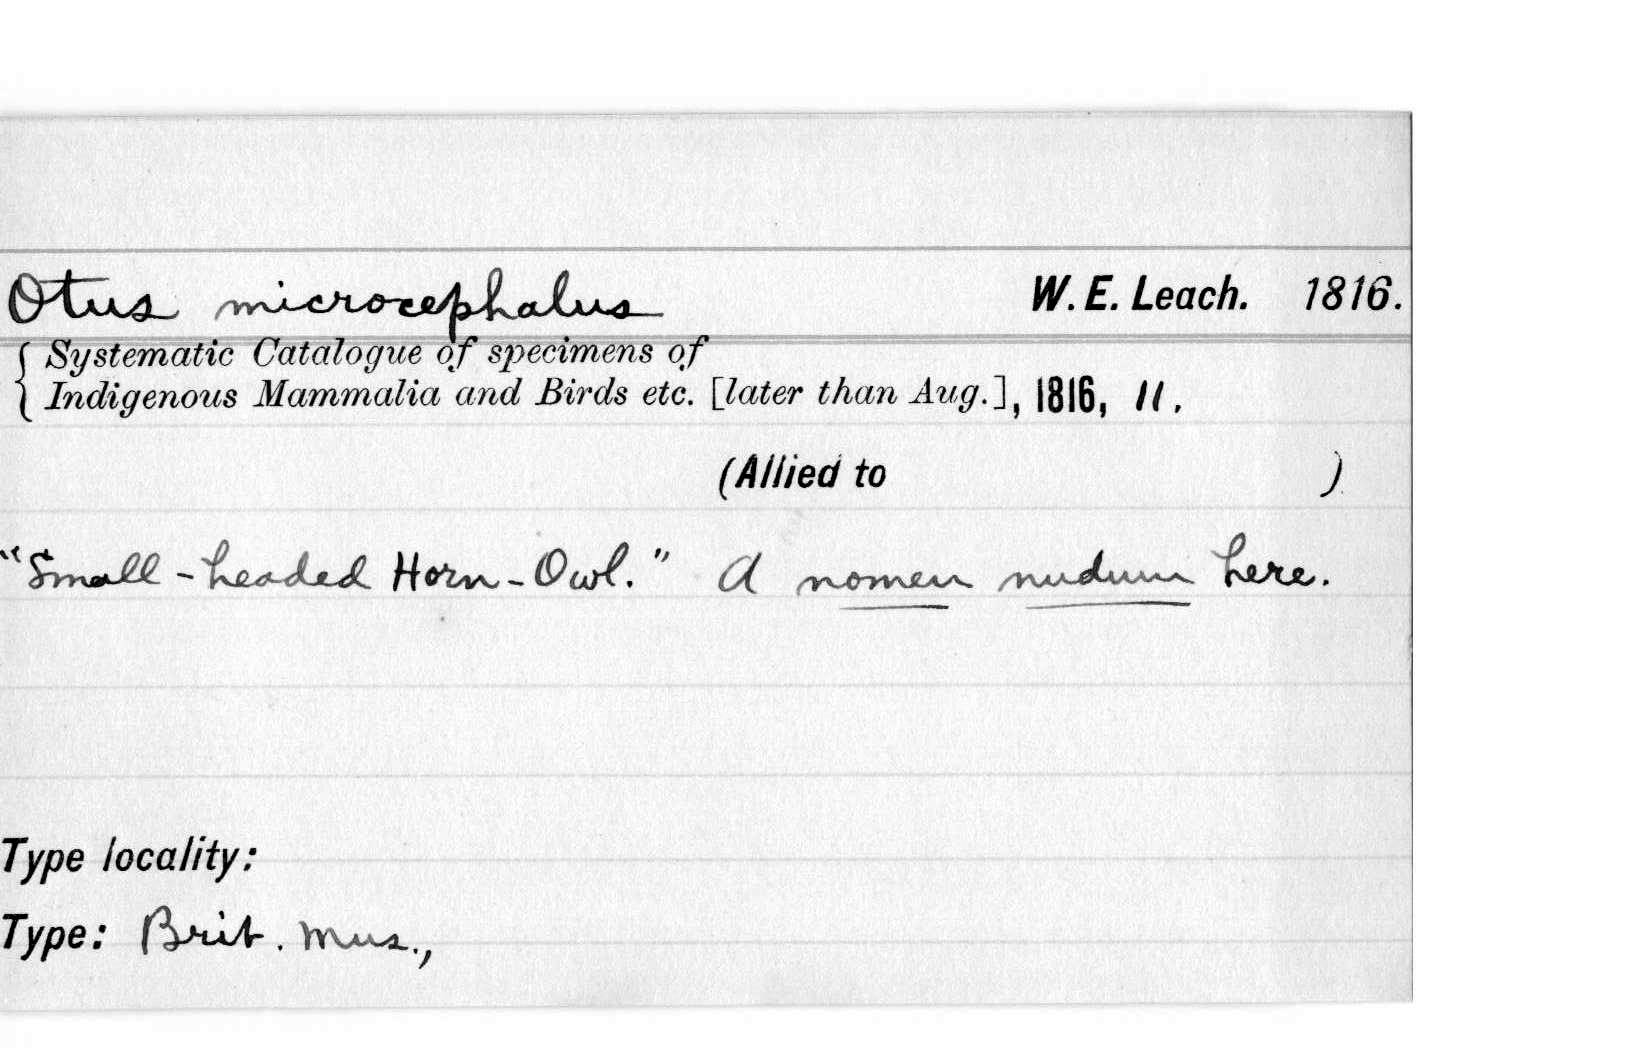 Otus microcephalus W. E. Leach. 1816.
{ Systematic Catalogue of specimens of
Indigenous Mammalia and Birds etc. [later than Aug.], 1816, 11.
(Allied to )
"Small-headed Horn-Owl." A nomen nudum here.
Type locality:
Type: Brit. Mus.,